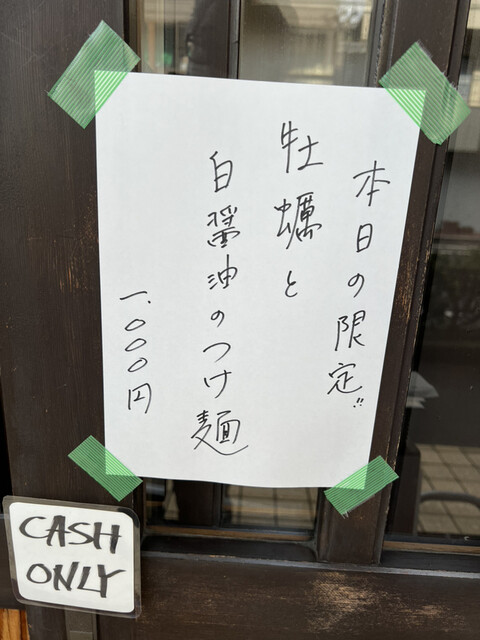 本日の限定!!
牡蠣と
白醤油のつけ麺
一、〇〇〇円
CASH
ONLY